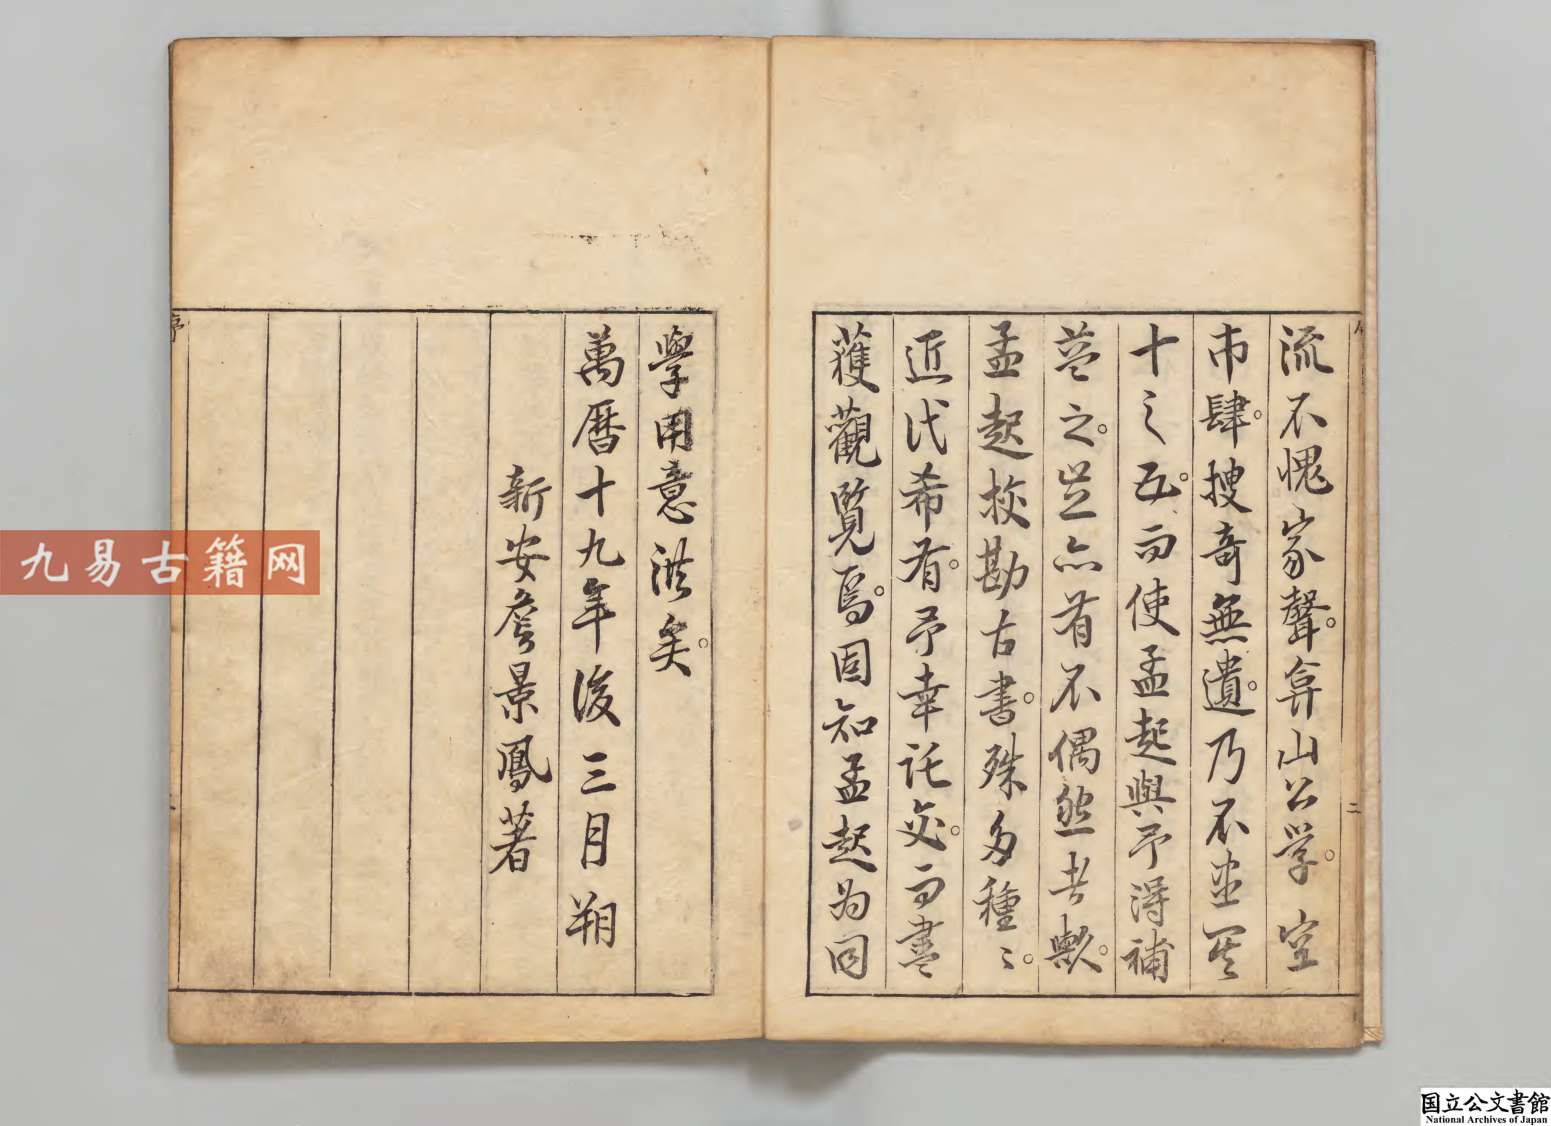 流不愧家聲。弇山公學。空
市肆。搜奇無遺。乃不盡買
十之五。而使孟起與予得補
葺之。豈亦有不偶然者歟。
孟起挍勘古書。殊多種〻。
近代希有。予幸託交。而盡
獲觀覽焉。固知孟起为同
學用意洪矣。
萬曆十九年後三月朔
新安詹景鳳著
序
二
九易古籍网
国立公文書館
National Archives of Japan